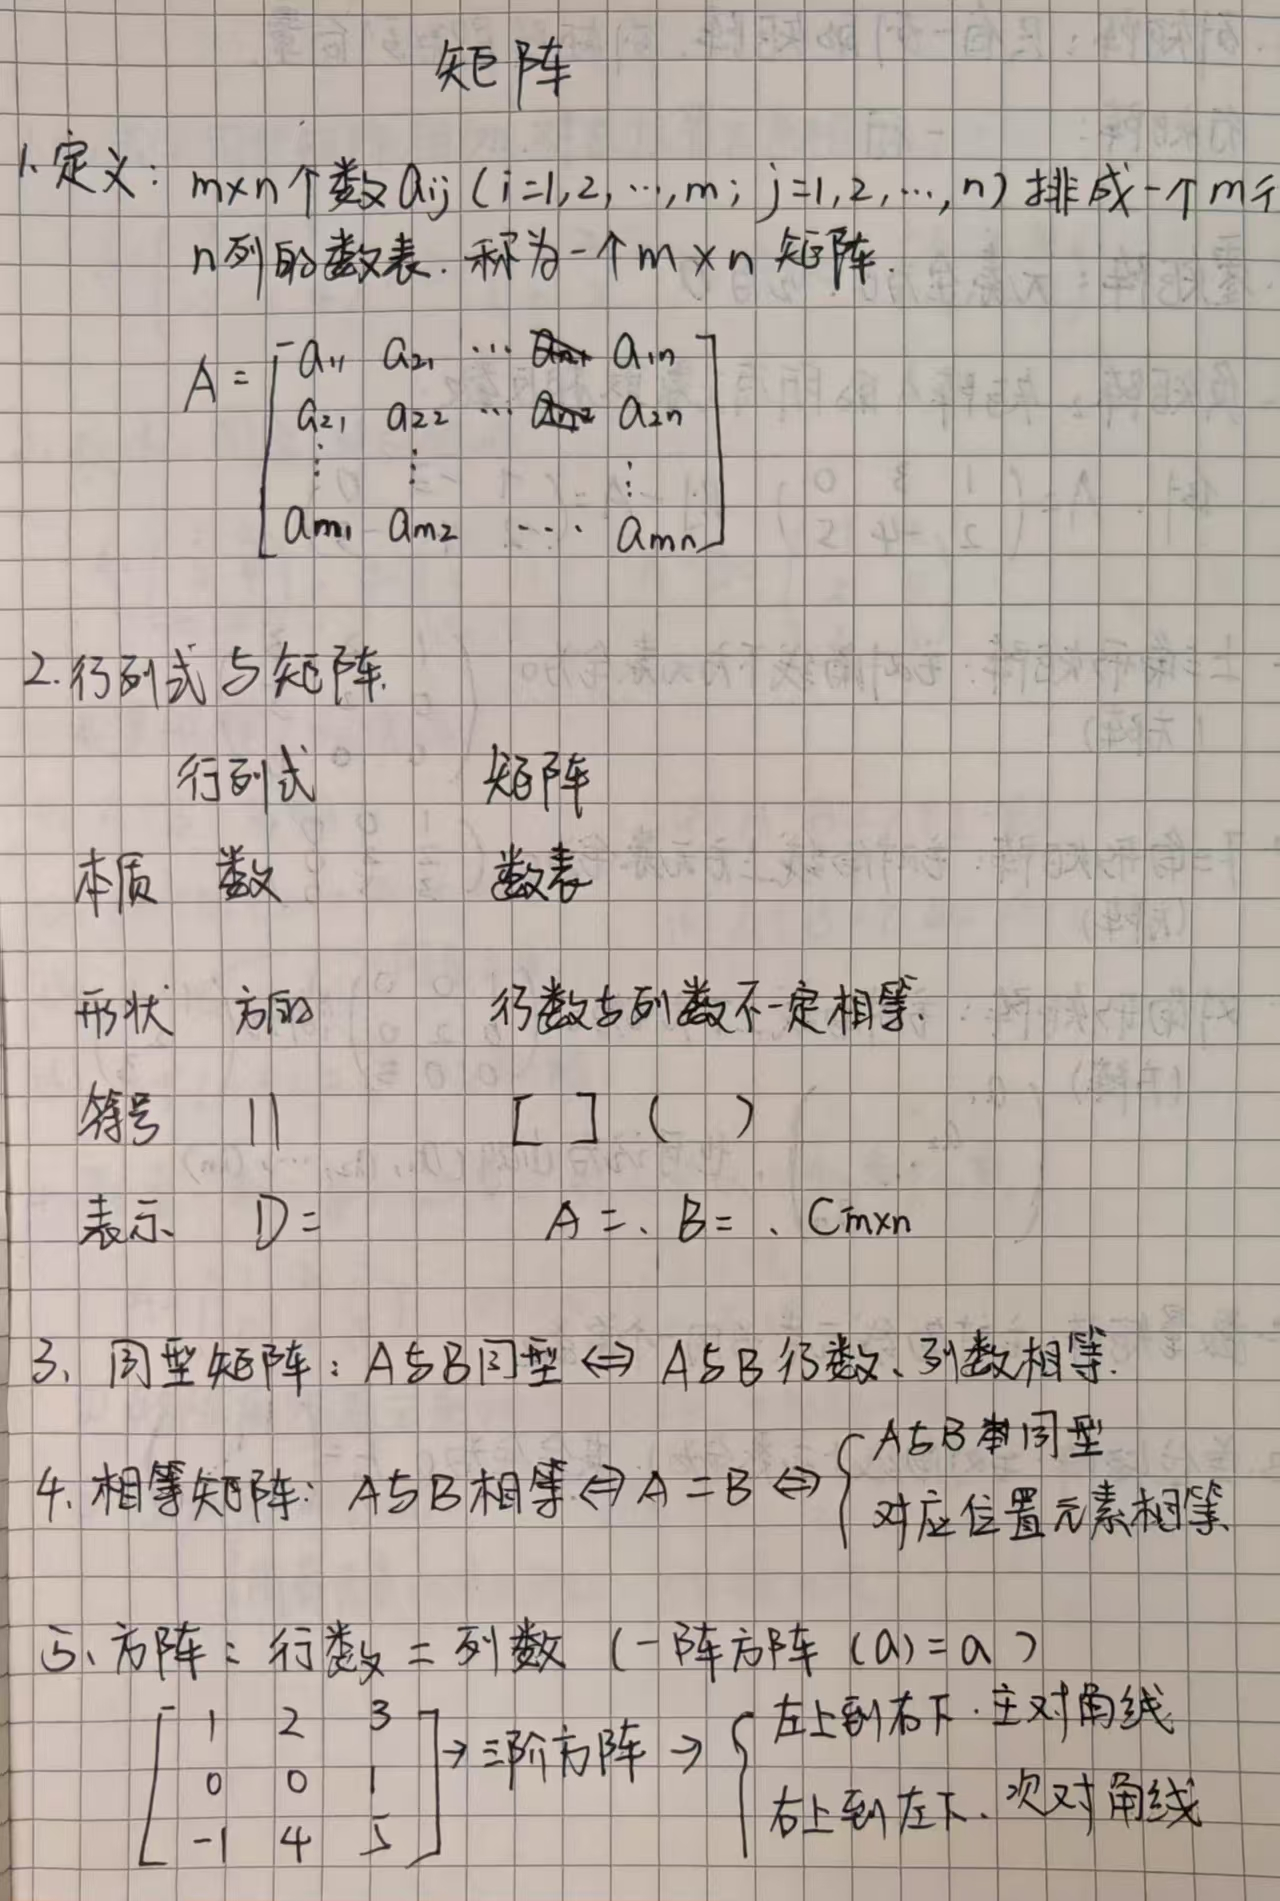 矩阵
1. 定义: m×n个数 aij (i=1,2,…,m; j=1,2,…,n) 排成一个m行
n列的数表. 称为一个m×n矩阵.
A = [ a11 a21 … a1n
a21 a22 … a2n
⋮ ⋮ ⋮
am1 am2 … amn ]
2. 行列式与矩阵.
行列式 矩阵
本质 数 数表
形状 方的 行数与列数不一定相等.
符号 | | [ ] ( )
表示 D= A=、B= 、Cm×n
3、同型矩阵: A与B同型 ⇔ A与B行数、列数相等.
4. 相等矩阵: A与B相等 ⇔ A=B ⇔ { A与B同型
对应位置元素相等
5、方阵: 行数=列数 (一阵方阵 (a)=a )
[ 1 2 3
0 0 1
-1 4 5 ] → 三阶方阵 → { 左上到右下. 主对角线
右上到左下. 次对角线